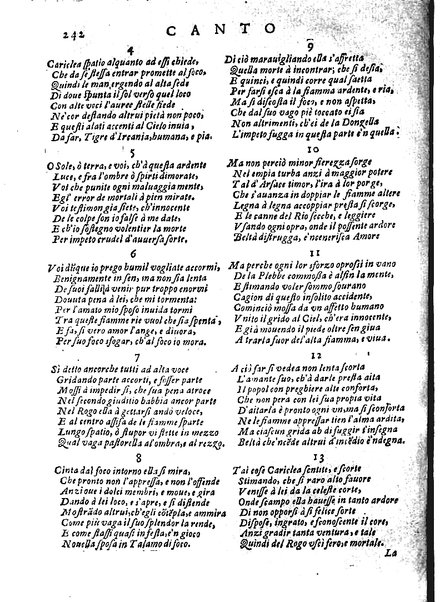 242 CANTO
4
Cariclea spatio alquanto ad essi chiede,
Che da se stessa entrar promette al foco,
Quindi le man, ergendo al alta sede
Di doue spunta il sol verso quel loco
Con alte voci l'auree stelle fiede
Nè'cor destando altrui pietà non poco,
E questi alati accenti al Cielo inuia,
Da far, Tigre d'Ircania, humana, e pia.
5
O Sole, ò terra, e voi, ch'à questa ardente
Luce, e fra l'ombre ò spirti dimorate,
Voi che punite ogni maluaggia mente,
Egl' error de mortali à pien mirate.
Voi testimon gia siete, ch'innocente
De le colpe son io false à me date,
E ch'io sostegno volontier la morte
Per impeto crudel d'auuersa sorte.
6
Voi dunque io prego humil vogliate accormi,
Benignamente in sen, ma non sia lenta
De' suoi falli à venir pur troppo enormi
Douuta pena à lei, che mi tormenta:
Per l'amato mio sposo inuida tormi
Tra queste fiamme rie vuol che sia spenta,
E fa, si vero amor l'ange, e diuora,
Per suo foco sfogar, ch'al foco io mora.
7
Sì detto ancorche tutti ad alta voce
Gridando parte accorti, e fosser parte
Mossi à impedir sì, che sua pena atroce
Nel secondo giuditio habbia ancor parte
Nel Rogo ella à gettarsi andò veloce,
E al centro assisa de le fiamme sparte
Lungo spatio, ò stupor vi stette in mezzo
Qual vaga pastorella al'ombra, al rezzo.
8
Cinta dal foco intorno ella si mira,
Che pronto non l'appressa, e non l'accende
Anzi oue i dolci membri, e moue, e gira
Dando à lei loco, e s'apre, e si distende
Mostrãdo altrui, ch'egli cõtẽpla, e ammira
Come più vaga il suo splendor la rende,
E come stassi quasi in festa, e'n gioco
Nouella sposa in Talamo di foco.
9
Di ciò marauigliando ella s'affretta
Quella morte à incontrar, che si desia,
E quinci, e quindi corre qual saetta
Per farsi esca à la fiamma ardente, e ria,
Ma si discosta il foco, e non aspetta,
Che dal suo vago piè toccato ei sia
Non altrimenti, ch'ei de la Dongella
L'impeto fugga in questa parte e'n quella.
10
Ma non perciò minor fierezza sorge
Nel empia turba anzi à maggior potere
Tal d'Arsace timor, l'ira à lor porge,
Che s'auanza in doppiar le fiamme altere
Legna à legna accoppiar presta si scorge,
E le canne del Rio secche, e leggiere
Vsando ogni opra, onde il possente ardore
Beltà distrugga, e'ncenerisca Amore
11
Ma perche ogni lor sforzo oprossi in vano
De la Plebbe commossa è alfin la mente,
E stimando voler sommo sourano
Cagion di questo insolito accidente,
Cominciò mossa da vn affetto humano
Vnito il grido al Ciel, ch'era innocente,
E già mouendo il piede oltre sen giua
A trarla fuor d'alta fiamma, e viua.
12
A ciò far si vedea non lenta scorta
L'amante suo, ch'à darle presta aita
Il popol con preghiere alte conforta,
Che non pera con lei sua propia vita
D'aitarla è pronto ogni vn, ma si sconforta
Ne le fiamme appressar tien l'alma ardita,
Ma ciascun grida ab di fuggir s'insegna
Beltà che'ncẽde altrui d'incẽdio è'ndegna.
13
Tai cose Cariclea sentite, e scorte
Stimando, che sì raro alto fauore
Venisse à lei da la celeste corte,
Onde scampo ella hauesse in tanto ardore
Di non opporsi à sì felice sorte
Dispose, ingrato, e sconoscente il core,
Anzi gradir tanta ventura, e tale
Quindi del Rogo uscì fero, e mortale.
La